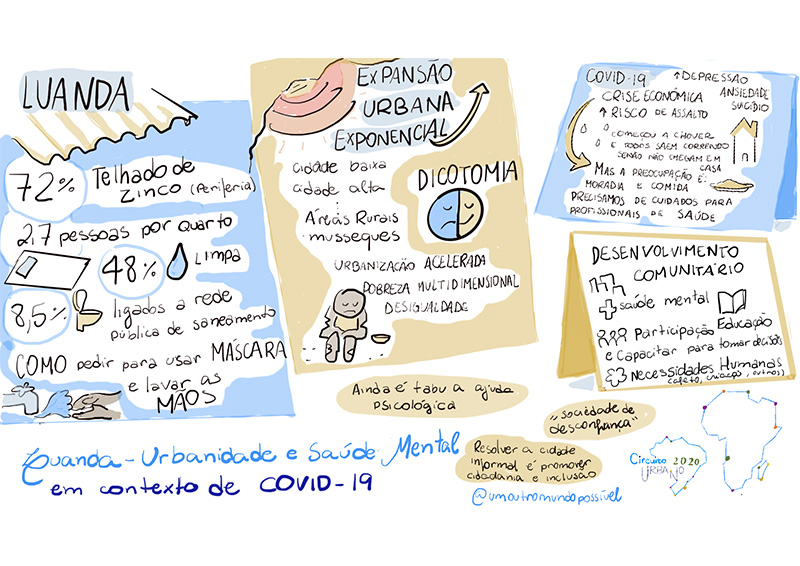 LUANDA
72%
Telhado de
Zinco (Periferia)
2,7 pessoas por quarto
48% Limpa
8,5% ligados a rede
pública de saneamento
COMO pedir para usar MÁSCARA
e lavar as
MÃOS
EXPANSÃO
URBANA
EXPONENCIAL
cidade baixa
cidade alta
Áreas Rurais
musseques
DICOTOMIA
URBANIZAÇÃO ACELERADA
POBREZA MULTIDIMENSIONAL
DESIGUALDADE
COVID-19
CRISE ECONÔMICA
↑ RISCO DE ASSALTO
↑ DEPRESSÃO
ANSIEDADE
SUICÍDIO
COMEÇOU A CHOVER
E TODOS SAEM CORRENDO
SENÃO NÃO CHEGAM EM
CASA
MAS A PREOCUPAÇÃO É:
MORADIA E COMIDA
PRECISAMOS DE CUIDADOS PARA
PROFISSIONAIS DE SAÚDE
DESENVOLVIMENTO
COMUNITÁRIO
saúde mental
Participação Educação
e Capacitar para tomar decisões
Necessidades Humanas
(afeto, criação, outros)
Ainda é tabu a ajuda
psicológica
"sociedade de
desconfiança"
Resolver a cidade
informal é promover
cidadania e inclusão
Luanda - Urbanidade e Saúde Mental
em contexto de COVID-19
@umoutromundopossível
Circuito 2020
URBANO